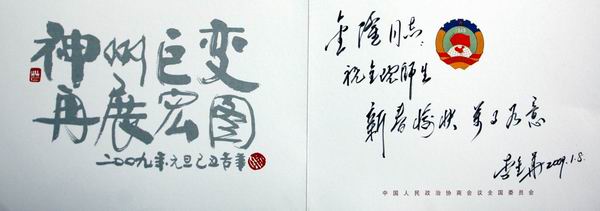 神州巨变
再展宏图
二〇〇九年元旦己丑吉事
金隆同志：
祝全理师生
新春愉快 万事如意
2009.1.8.
中国人民政治协商会议全国委员会